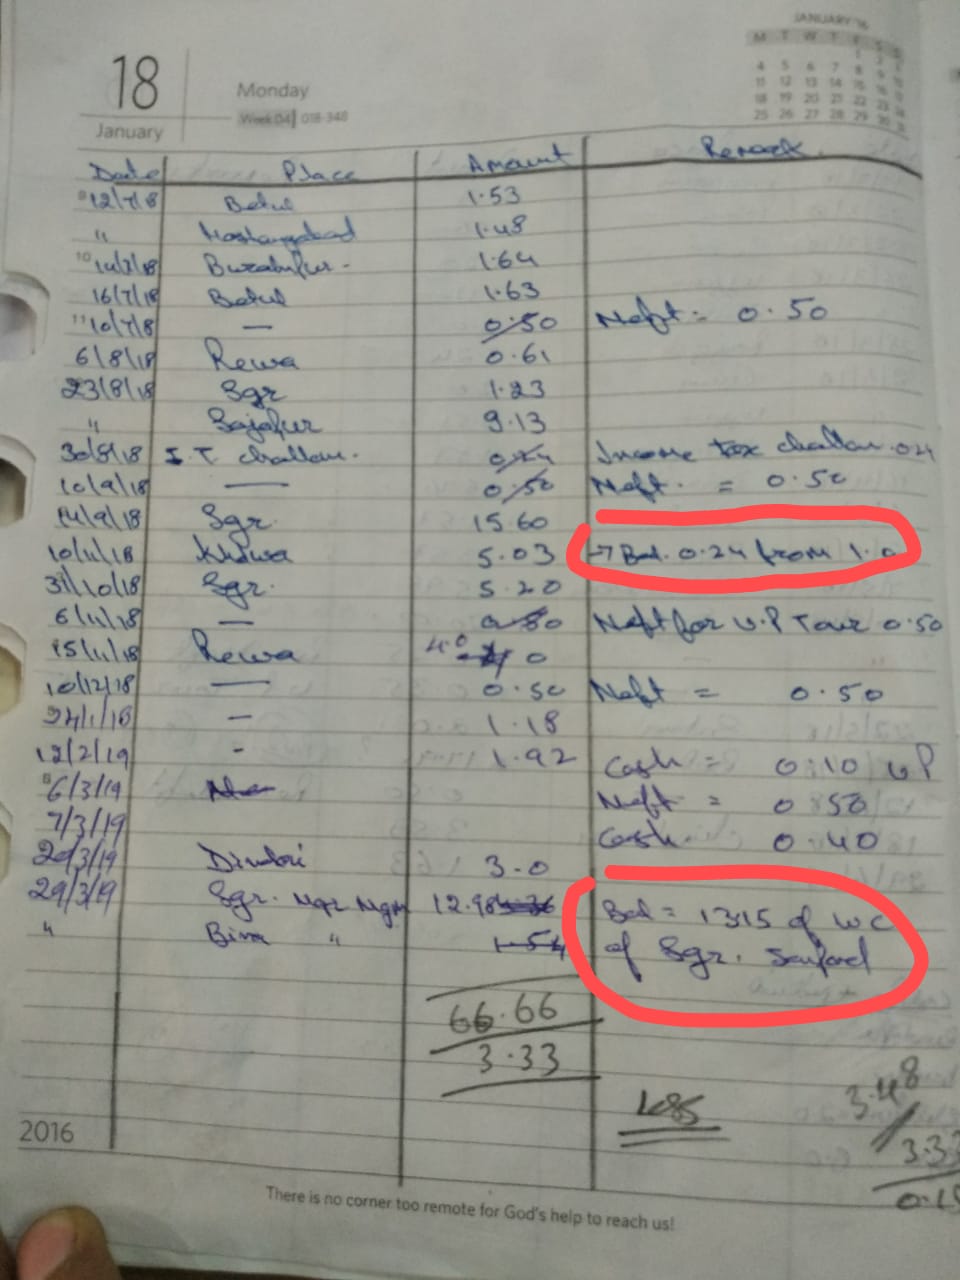 JANUARY '16
M T W T F S S
4 5 6 7 8 9 10
11 12 13 14 15 16 17
18 19 20 21 22 23 24
25 26 27 28 29 30 31
18 Monday
January Week 04 018-348
Date Place Amount Remark
12/7/18 Betul 1.53
" Hoshangabad 1.48
14/7/18 Burahnpur - 1.64
16/7/18 Betul 1.63
10/7/18 — 0.50 Neft = 0.50
6/8/18 Rewa 0.61
23/8/18 Sgr 1.23
" Sajapur 9.13
30/8/18 I.T. challan. 0.24 Income tax challan 0.24
10/9/18 — 0.50 Neft. = 0.50
14/9/18 Sgr. 15.60
10/11/18 5.03 → Bal. 0.24 from 1.0
31/10/18 Sgr. 5.20
6/11/18 — 0.50 Neft for U.P Tour 0.50
15/11/18 Rewa 4.0
10/12/18 — 0.50 Neft = 0.50
24/1/18 — 1.18
12/2/19 - 1.92 Cash = 0.10 UP
6/3/19 Neft = 0.50
7/3/19 Cash. 0.40
20/3/19 Dindori 3.0
29/3/19 Sgr. Ngr Ngm 12.98 Bal = 13.15 of WC
" Bina " 1.54 of Sgr.
66.66
3.33
1.85
3.48
3.33
0.15
2016
There is no corner too remote for God's help to reach us!